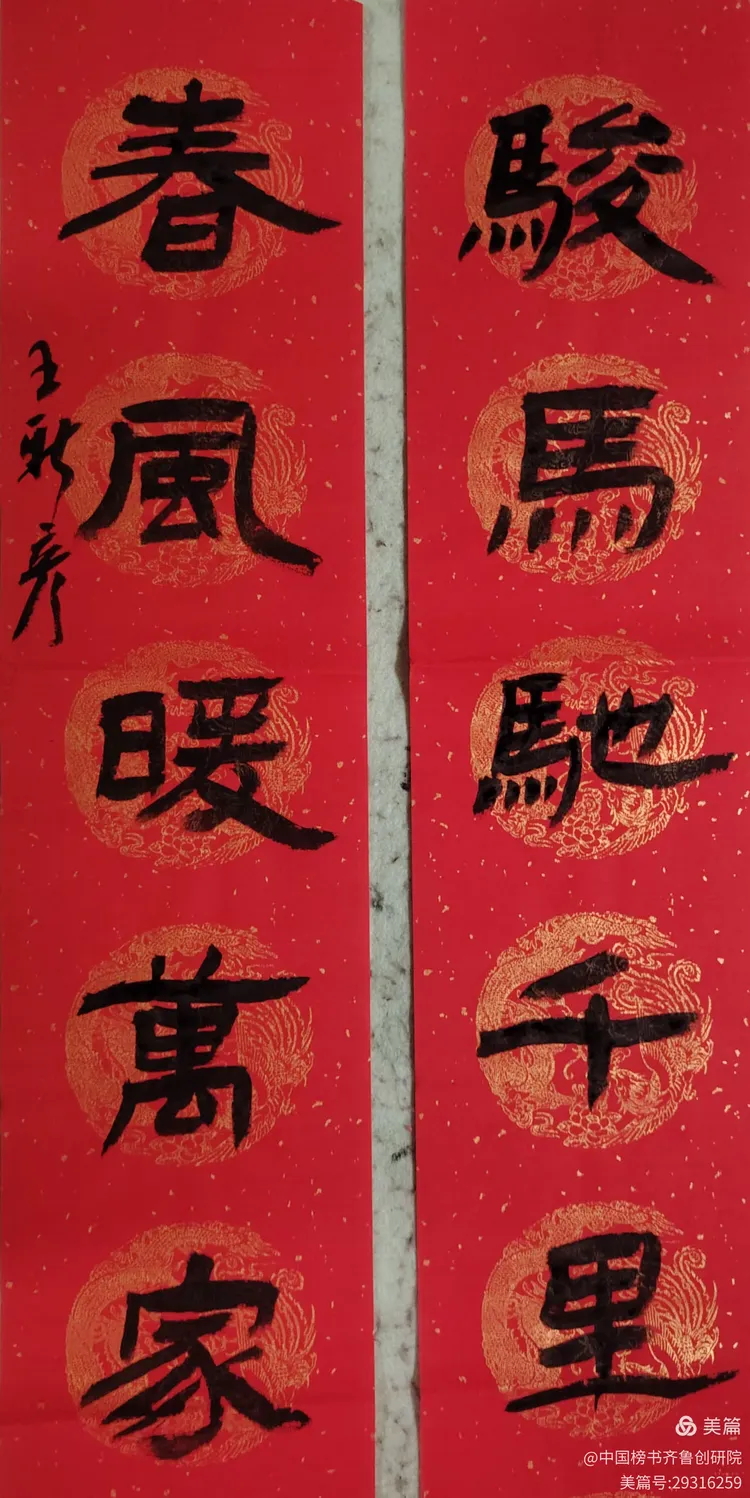 駿馬馳千里
春風暖萬家
王新彦
美篇
@中国榜书齐鲁创研院
美篇号:29316259